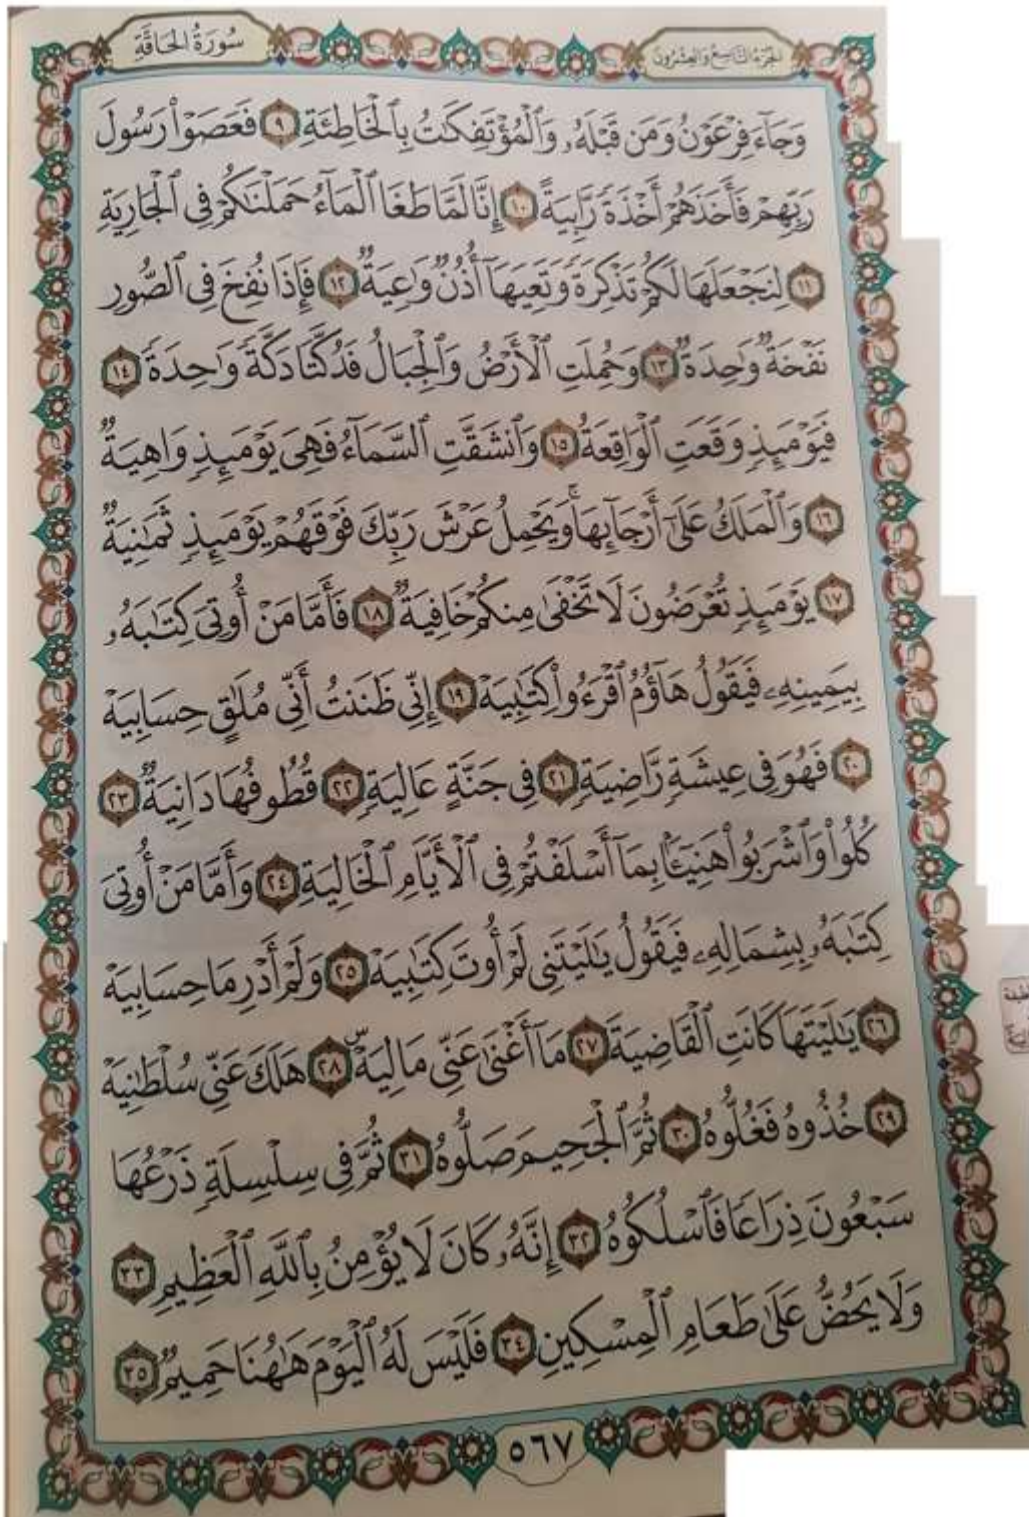 الجزء التاسع والعشرون
سورة الحاقة
وَجَآءَ فِرْعَوْنُ وَمَن قَبْلَهُۥ وَٱلْمُؤْتَفِكَٰتُ بِٱلْخَاطِئَةِ ٩ فَعَصَوْا۟ رَسُولَ
رَبِّهِمْ فَأَخَذَهُمْ أَخْذَةً رَّابِيَةً ١٠ إِنَّا لَمَّا طَغَا ٱلْمَآءُ حَمَلْنَٰكُمْ فِى ٱلْجَارِيَةِ
١١ لِنَجْعَلَهَا لَكُمْ تَذْكِرَةً وَتَعِيَهَآ أُذُنٌ وَٰعِيَةٌ ١٢ فَإِذَا نُفِخَ فِى ٱلصُّورِ
نَفْخَةٌ وَٰحِدَةٌ ١٣ وَحُمِلَتِ ٱلْأَرْضُ وَٱلْجِبَالُ فَدُكَّتَا دَكَّةً وَٰحِدَةً ١٤
فَيَوْمَئِذٍ وَقَعَتِ ٱلْوَاقِعَةُ ١٥ وَٱنشَقَّتِ ٱلسَّمَآءُ فَهِىَ يَوْمَئِذٍ وَاهِيَةٌ
١٦ وَٱلْمَلَكُ عَلَىٰٓ أَرْجَآئِهَا ۚ وَيَحْمِلُ عَرْشَ رَبِّكَ فَوْقَهُمْ يَوْمَئِذٍ ثَمَٰنِيَةٌ
١٧ يَوْمَئِذٍ تُعْرَضُونَ لَا تَخْفَىٰ مِنكُمْ خَافِيَةٌ ١٨ فَأَمَّا مَنْ أُوتِىَ كِتَٰبَهُۥ
بِيَمِينِهِۦ فَيَقُولُ هَآؤُمُ ٱقْرَءُوا۟ كِتَٰبِيَهْ ١٩ إِنِّى ظَنَنتُ أَنِّى مُلَٰقٍ حِسَابِيَهْ
٢٠ فَهُوَ فِى عِيشَةٍ رَّاضِيَةٍ ٢١ فِى جَنَّةٍ عَالِيَةٍ ٢٢ قُطُوفُهَا دَانِيَةٌ ٢٣
كُلُوا۟ وَٱشْرَبُوا۟ هَنِيٓـًٔۢا بِمَآ أَسْلَفْتُمْ فِى ٱلْأَيَّامِ ٱلْخَالِيَةِ ٢٤ وَأَمَّا مَنْ أُوتِىَ
كِتَٰبَهُۥ بِشِمَالِهِۦ فَيَقُولُ يَٰلَيْتَنِى لَمْ أُوتَ كِتَٰبِيَهْ ٢٥ وَلَمْ أَدْرِ مَا حِسَابِيَهْ
٢٦ يَٰلَيْتَهَا كَانَتِ ٱلْقَاضِيَةَ ٢٧ مَآ أَغْنَىٰ عَنِّى مَالِيَهْ ۜ ٢٨ هَلَكَ عَنِّى سُلْطَٰنِيَهْ
٢٩ خُذُوهُ فَغُلُّوهُ ٣٠ ثُمَّ ٱلْجَحِيمَ صَلُّوهُ ٣١ ثُمَّ فِى سِلْسِلَةٍ ذَرْعُهَا
سَبْعُونَ ذِرَاعًا فَٱسْلُكُوهُ ٣٢ إِنَّهُۥ كَانَ لَا يُؤْمِنُ بِٱللَّهِ ٱلْعَظِيمِ ٣٣
وَلَا يَحُضُّ عَلَىٰ طَعَامِ ٱلْمِسْكِينِ ٣٤ فَلَيْسَ لَهُ ٱلْيَوْمَ هَٰهُنَا حَمِيمٌ ٣٥
٥٦٧